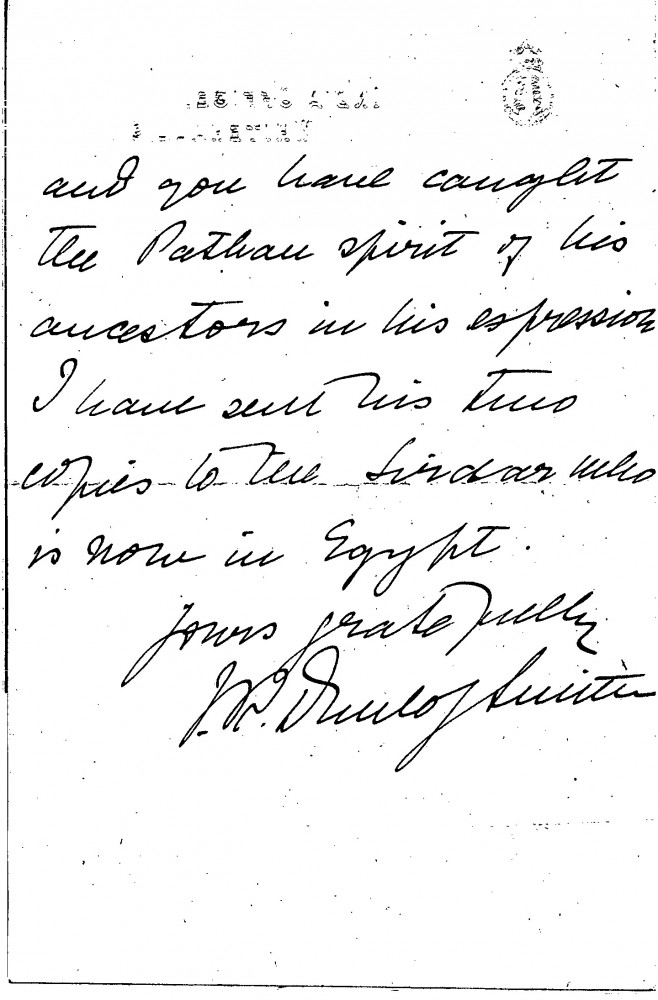 and you have caught
the Pathan spirit of his
ancestors in his expression
I have sent his two
copies to the Sirdar who
is now in Egypt.
Yours gratefully
J.R. Dunlop Smith